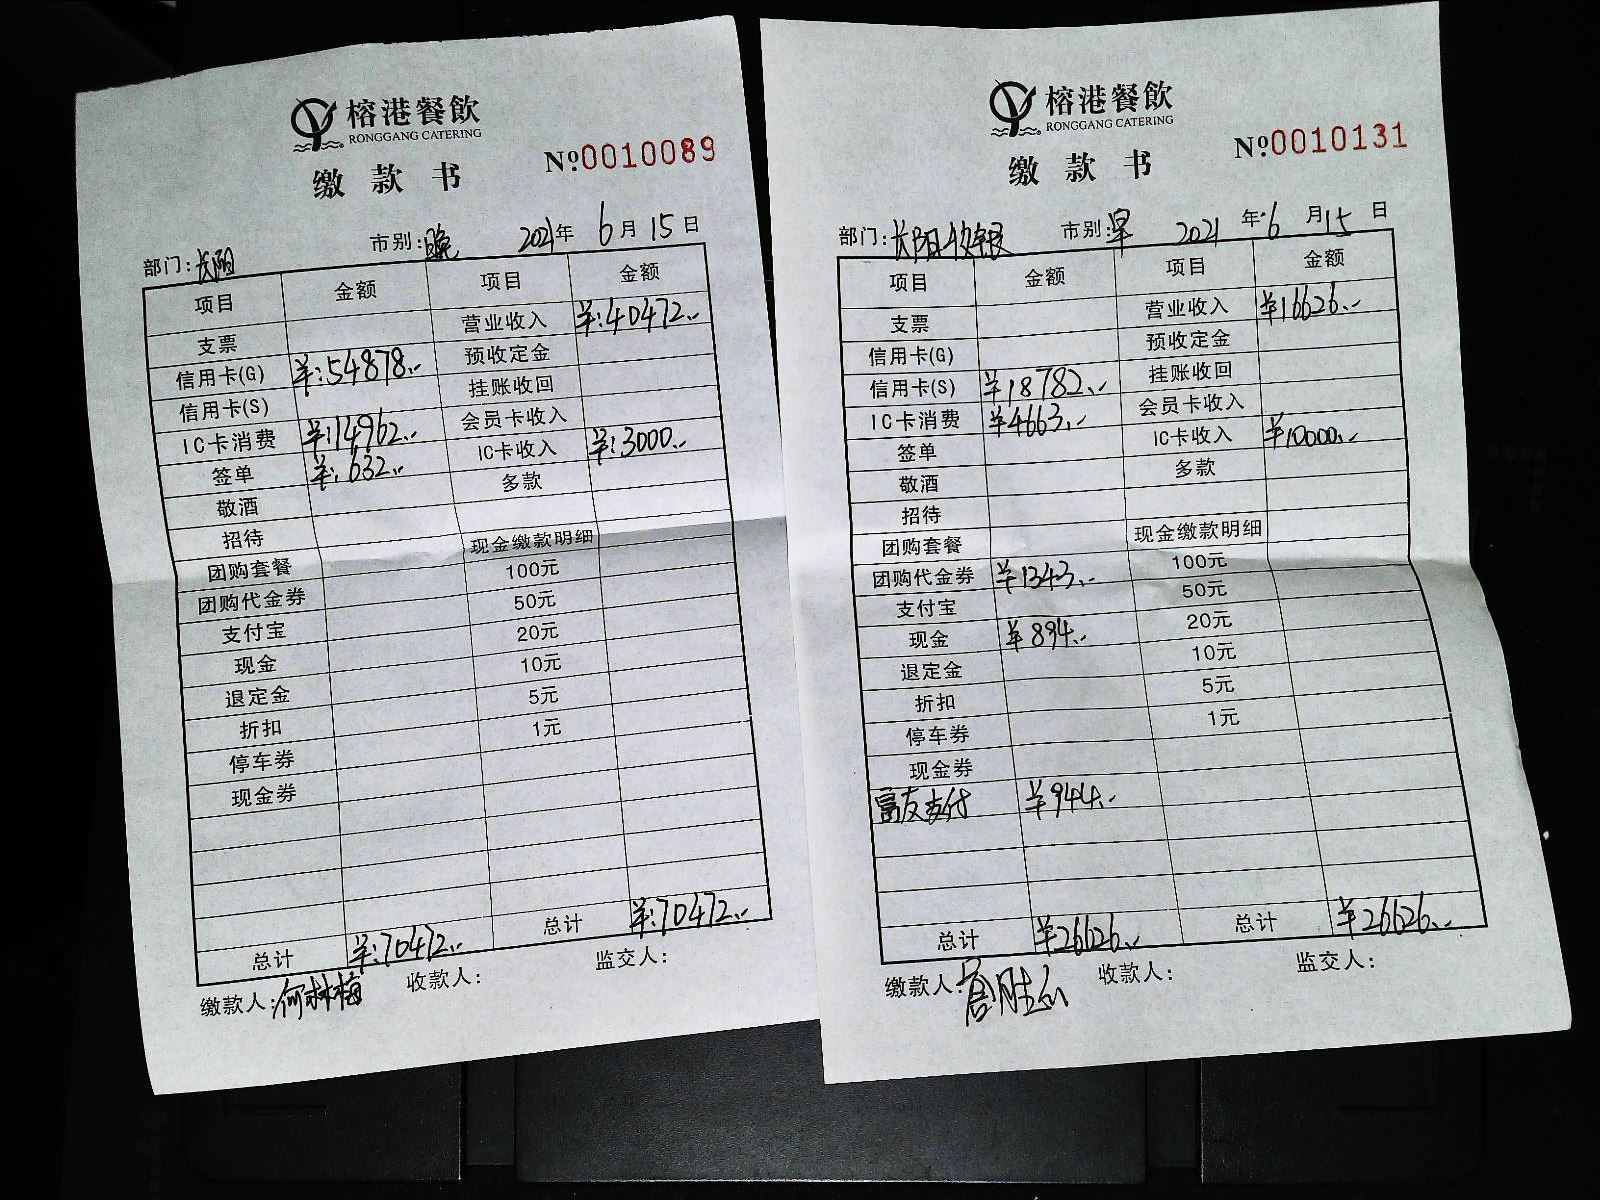 榕港餐飲
RONGGANG CATERING
缴款书
№0010089
部门:长阳 市别:晚 2021年6月15日
项目 金额 项目 金额
支票 营业收入 ¥:40472.-
信用卡(G) ¥:54878.- 预收定金
信用卡(S) 挂账收回
IC卡消费 ¥:14962.- 会员卡收入
签单 ¥:632.- IC卡收入 ¥:3000.-
敬酒 多款
招待
团购套餐 现金缴款明细
团购代金券 100元
支付宝 50元
现金 20元
退定金 10元
折扣 5元
停车券 1元
现金券
总计 ¥:70472.- 总计 ¥:70472.-
缴款人:何林梅 收款人: 监交人:
榕港餐飲
RONGGANG CATERING
缴款书
№0010131
部门:长阳收银 市别:早 2021年6月15日
项目 金额 项目 金额
支票 营业收入 ¥16626.-
信用卡(G) 预收定金
信用卡(S) ¥18782.- 挂账收回
IC卡消费 ¥4663.- 会员卡收入
签单 IC卡收入 ¥10000.-
敬酒 多款
招待
团购套餐 现金缴款明细
团购代金券 ¥1343.- 100元
支付宝 50元
现金 ¥894.- 20元
退定金 10元
折扣 5元
停车券 1元
现金券
富友支付 ¥944.-
总计 ¥26626.- 总计 ¥26626.-
缴款人: 收款人: 监交人: